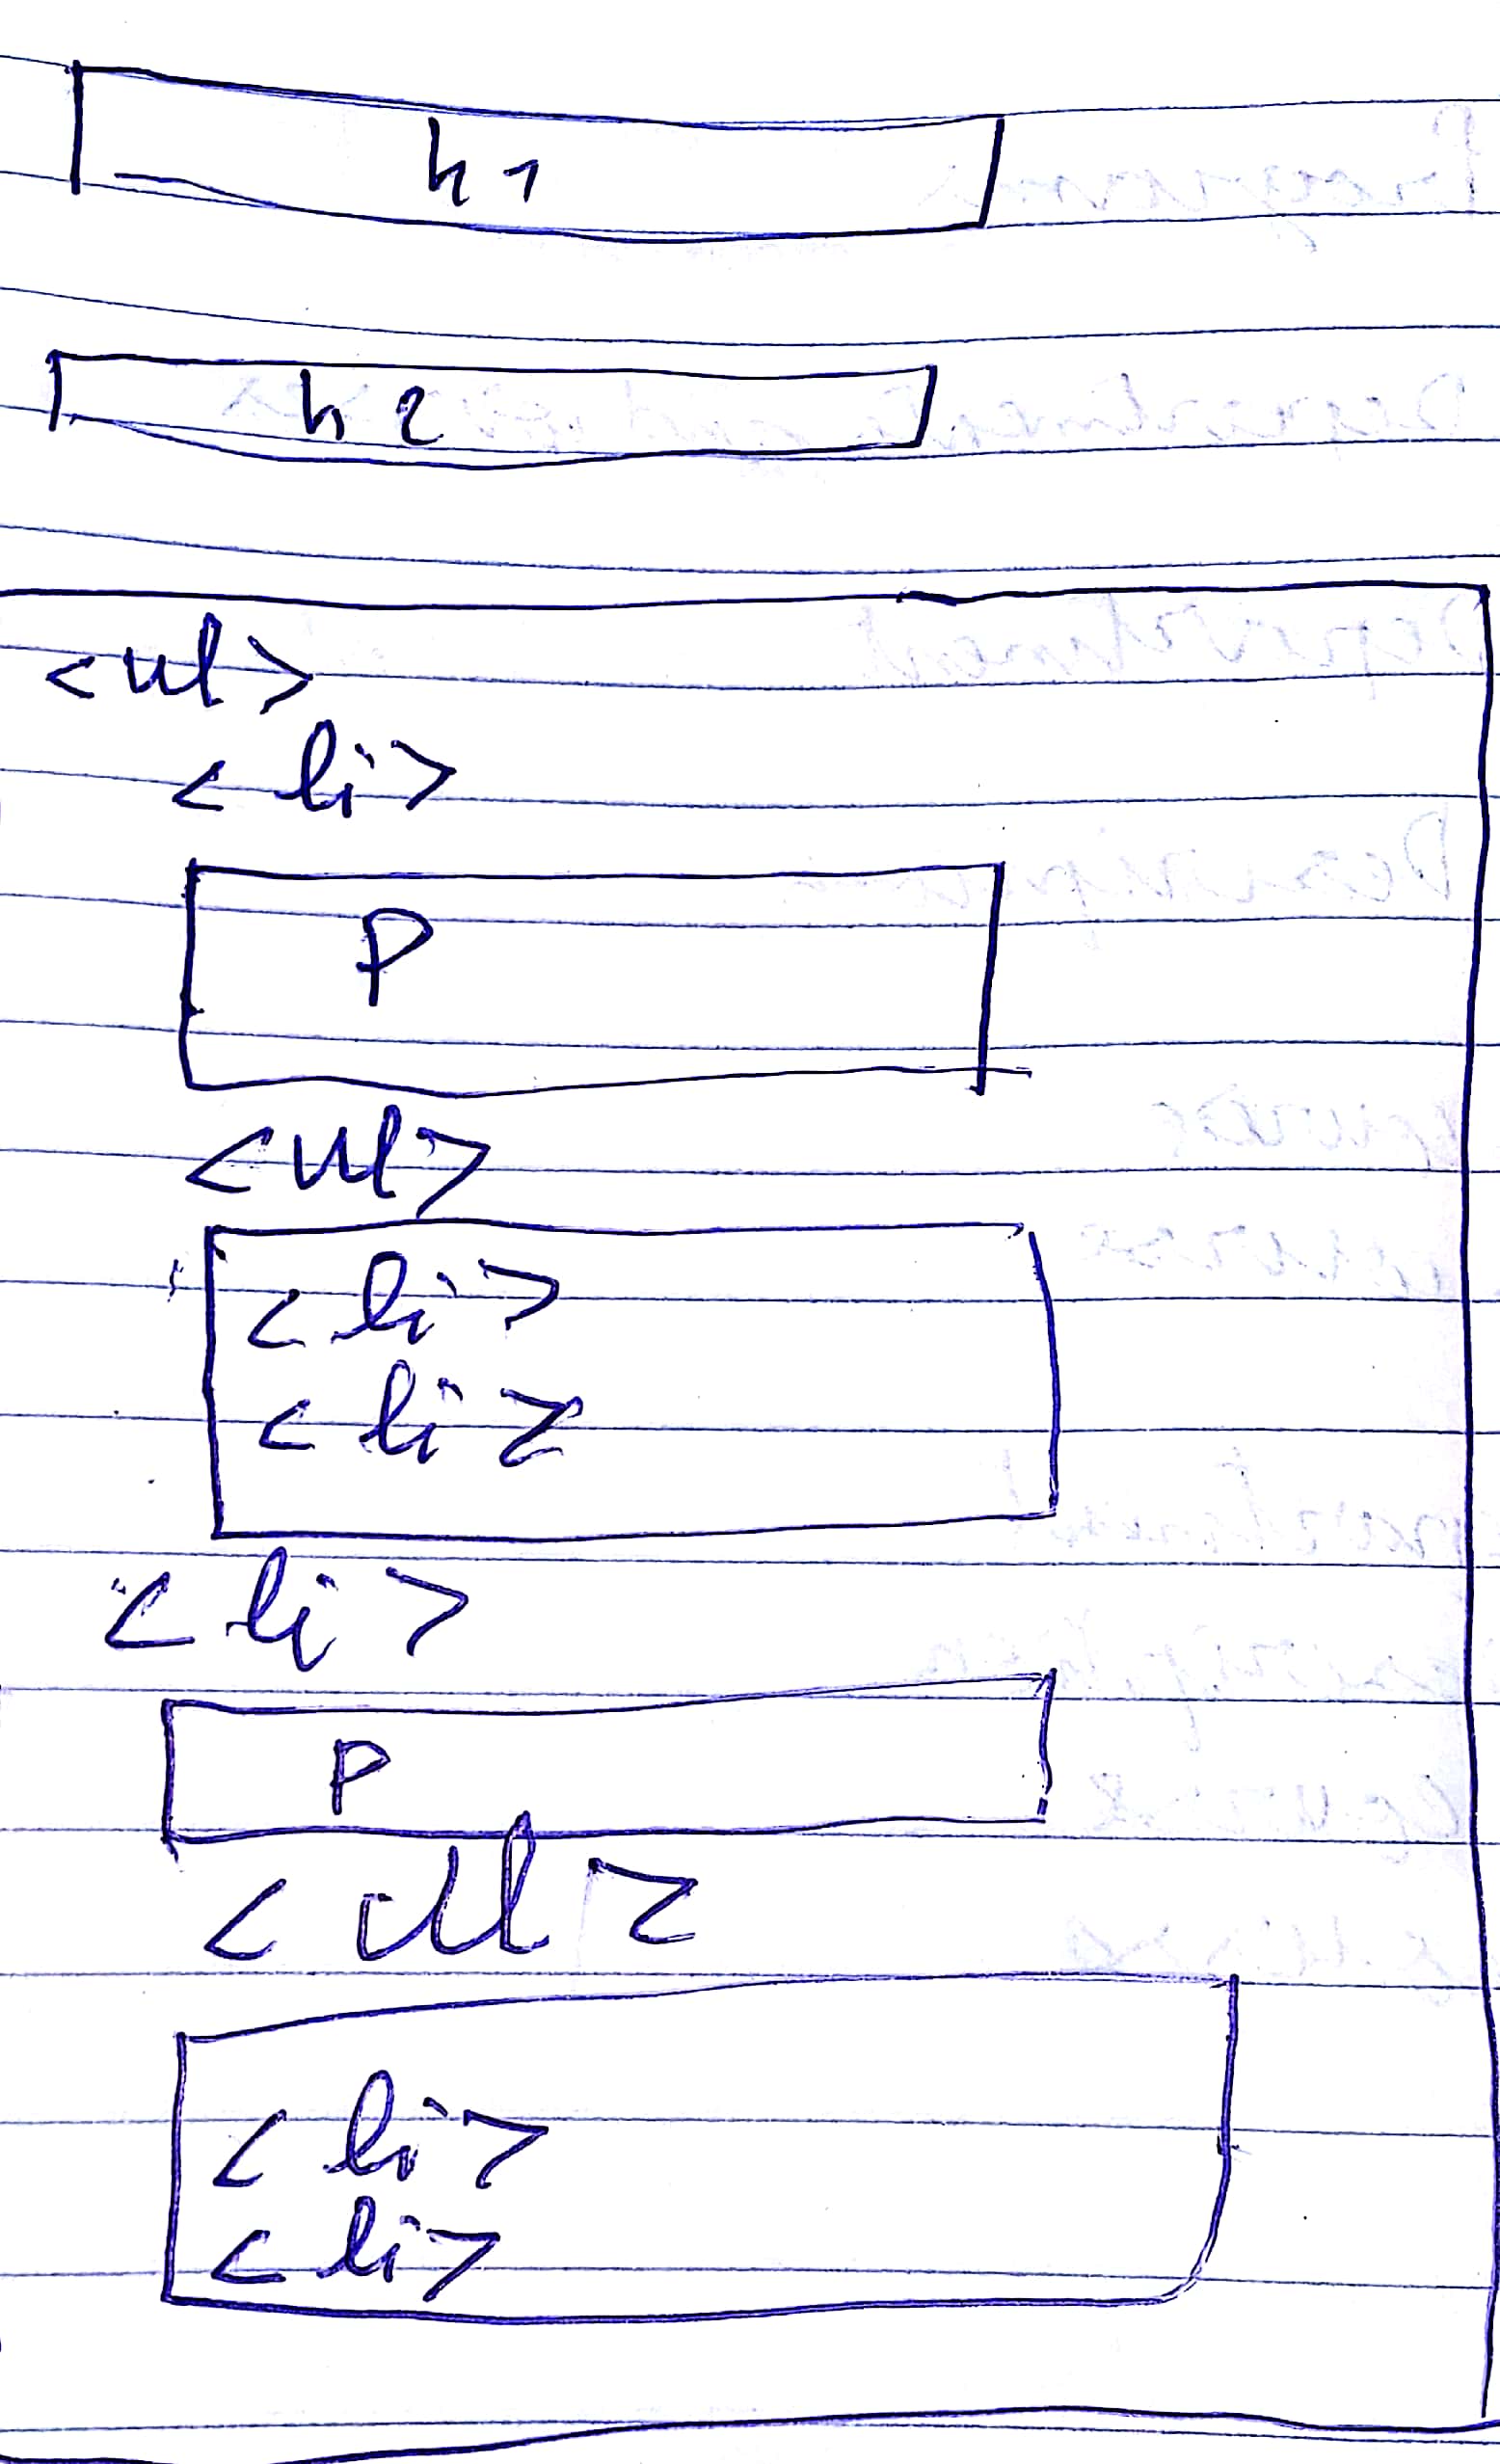 h1
h2
<ul>
<li>
P
<ul>
<li>
<li>
<li>
P
<ul>
<li>
<li>